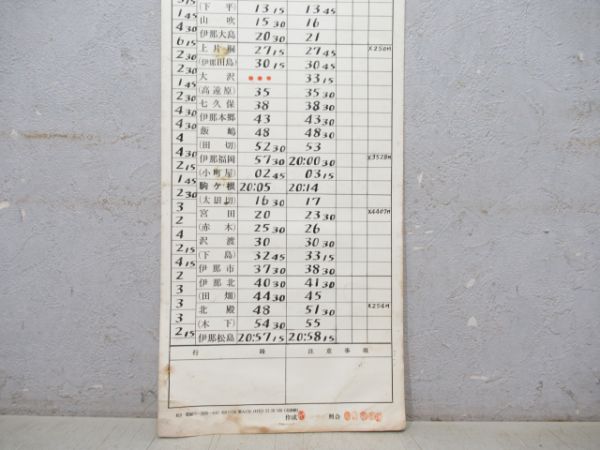 1 45 (下平) 13 15 13 45
1 45 山吹 15 30 16
4 30 伊那大島 20 30 21
6 15 上片桐 27 15 27 45 ×250M
2 30 (伊那田島) 30 15 30 45
2 30 大沢 ●●● 33 15
1 45 (高遠原) 35 35 30
2 30 七久保 38 38 30
4 伊那本郷 43 43 30
4 30 飯嶋 48 48 30
4 (田切) 52 30 53
4 30 伊那福岡 57 30 20:00 30 ×352列M
2 15 (小町屋) 02 45 03 15
1 45 駒ケ根 20:05 20:14
2 30 (大田切) 16 30 17
3 宮田 20 23 30 ×440列M
2 (赤木) 25 30 26
4 沢渡 30 30 30
2 15 (下島) 32 45 33 15
4 15 伊那市 37 30 38 30
2 伊那北 40 30 41 30
3 (田畑) 44 30 45
3 北殿 48 51 30 ×256M
3 (木下) 54 30 55
2 15 伊那松島 20:57 15 20:58 15
行路 注意事項
作成 照合